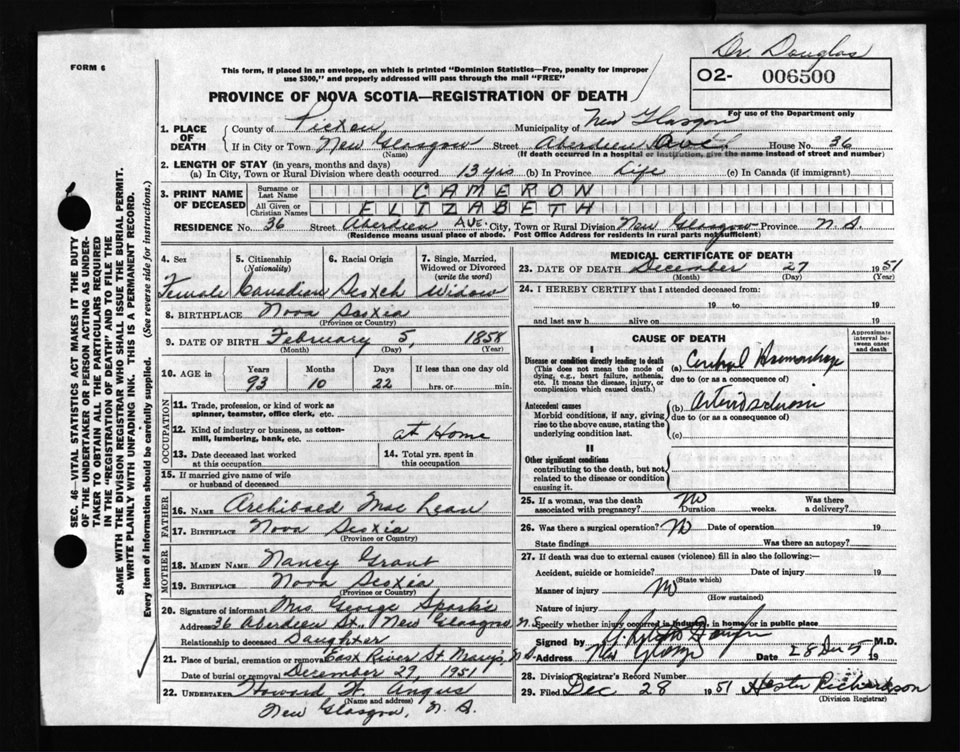 Dr. Douglas
FORM 6
02- 006500
This form, if placed in an envelope, on which is printed "Dominion Statistics—Free, penalty for improper
use $300," and properly addressed will pass through the mail "FREE"
PROVINCE OF NOVA SCOTIA—REGISTRATION OF DEATH
For use of the Department only
1. PLACE OF DEATH
County of Pictou Municipality of New Glasgow
If in City or Town New Glasgow Street Aberdeen Ave. House No. 36
(Name) (If death occurred in a hospital or institution, give the name instead of street and number)
2. LENGTH OF STAY (in years, months and days)
(a) In City, Town or Rural Division where death occurred 13 yrs (b) In Province Life (c) In Canada (if immigrant)
3. PRINT NAME OF DECEASED
Surname or Last Name CAMERON
All Given or Christian Names ELIZABETH
RESIDENCE No. 36 Street Aberdeen AVE. City, Town or Rural Division New Glasgow Province N.S.
(Residence means usual place of abode. Post Office Address for residents in rural parts not sufficient)
SEC. 46—VITAL STATISTICS ACT MAKES IT THE DUTY
OF THE UNDERTAKER OR PERSON ACTING AS UNDER-
TAKER TO OBTAIN ALL THE PARTICULARS REQUIRED
IN THE "REGISTRATION OF DEATH" AND TO FILE THE
SAME WITH THE DIVISION REGISTRAR WHO SHALL ISSUE THE BURIAL PERMIT.
WRITE PLAINLY WITH UNFADING INK. THIS IS A PERMANENT RECORD.
Every item of information should be carefully supplied. (See reverse side for instructions.)
4. Sex 5. Citizenship (Nationality) 6. Racial Origin 7. Single, Married, Widowed or Divorced (write the word)
Female Canadian Scotch Widow
8. BIRTHPLACE Nova Scotia
(Province or Country)
9. DATE OF BIRTH February 5, 1858
(Month) (Day) (Year)
10. AGE IN Years Months Days If less than one day old
93 10 22 hrs. or min.
OCCUPATION
11. Trade, profession, or kind of work as
spinner, teamster, office clerk, etc.
12. Kind of industry or business, as cotton-
mill, lumbering, bank, etc. at Home
13. Date deceased last worked
at this occupation
14. Total yrs. spent in
this occupation
15. If married give name of wife
or husband of deceased
FATHER
16. NAME Archibald Mac Lean
17. BIRTHPLACE Nova Scotia
(Province or Country)
MOTHER
18. MAIDEN NAME Nancy Grant
19. BIRTHPLACE Nova Scotia
(Province or Country)
20. Signature of informant Mrs. George Sparks
Address 36 Aberdeen St., New Glasgow N.S.
Relationship to deceased Daughter
21. Place of burial, cremation or removal East River St. Mary's, N.S.
Date of burial or removal December 29, 1951
22. UNDERTAKER Howard W. Angus
(Name and address)
New Glasgow, N.S.
MEDICAL CERTIFICATE OF DEATH
23. DATE OF DEATH December 27 1951
(Month) (Day) (Year)
24. I HEREBY CERTIFY that I attended deceased from:
19 to 19
and last saw h alive on 19
CAUSE OF DEATH
Approximate
interval be-
tween onset
and death
I
Disease or condition directly leading to death
(This does not mean the mode of
dying, e.g., heart failure, asthenia,
etc. It means the disease, injury, or
complication which caused death.)
(a) Cerebral Hemorrhage
due to (or as a consequence of)
Antecedent causes
Morbid conditions, if any, giving
rise to the above cause, stating the
underlying condition last.
(b)
due to (or as a consequence of)
(c)
II
Other significant conditions
contributing to the death, but not
related to the disease or condition
causing it.
25. If a woman, was the death
associated with pregnancy? No Duration weeks. Was there
a delivery?
26. Was there a surgical operation? No Date of operation 19
State findings Was there an autopsy?
27. If death was due to external causes (violence) fill in also the following:—
Accident, suicide or homicide? Date of injury 19
(State which)
Manner of injury No
(How sustained)
Nature of injury
Specify whether injury occurred in industry, in home or in public place
Signed by M.D.
Address New Glasgow Date 28 Dec 51 19
28. Division Registrar's Record Number
29. Filed Dec 28 1951 Hester Richardson
(Division Registrar)